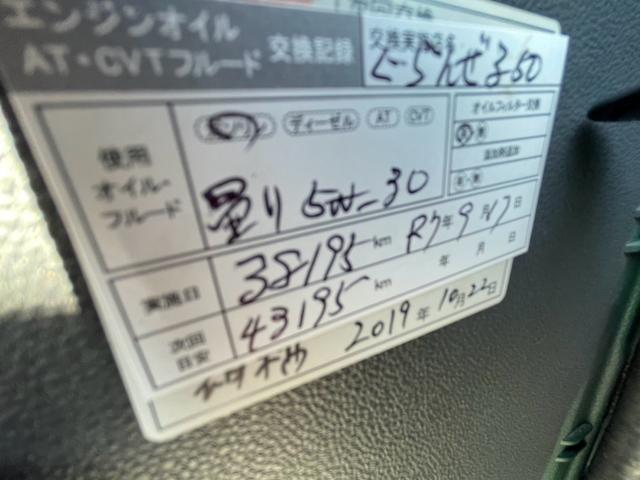 エンジンオイル
AT・CVTフルード 交換記録
交換実施店名
ぐらんぜ250
使用オイル・フルード
ガソリン ディーゼル AT CVT
量り 5W-30
オイルフィルター交換
有・無
添加剤追加
有・無
実施日 38195km R7年9月17日
次回目安 43195km 年 月 日
2019年10月22日